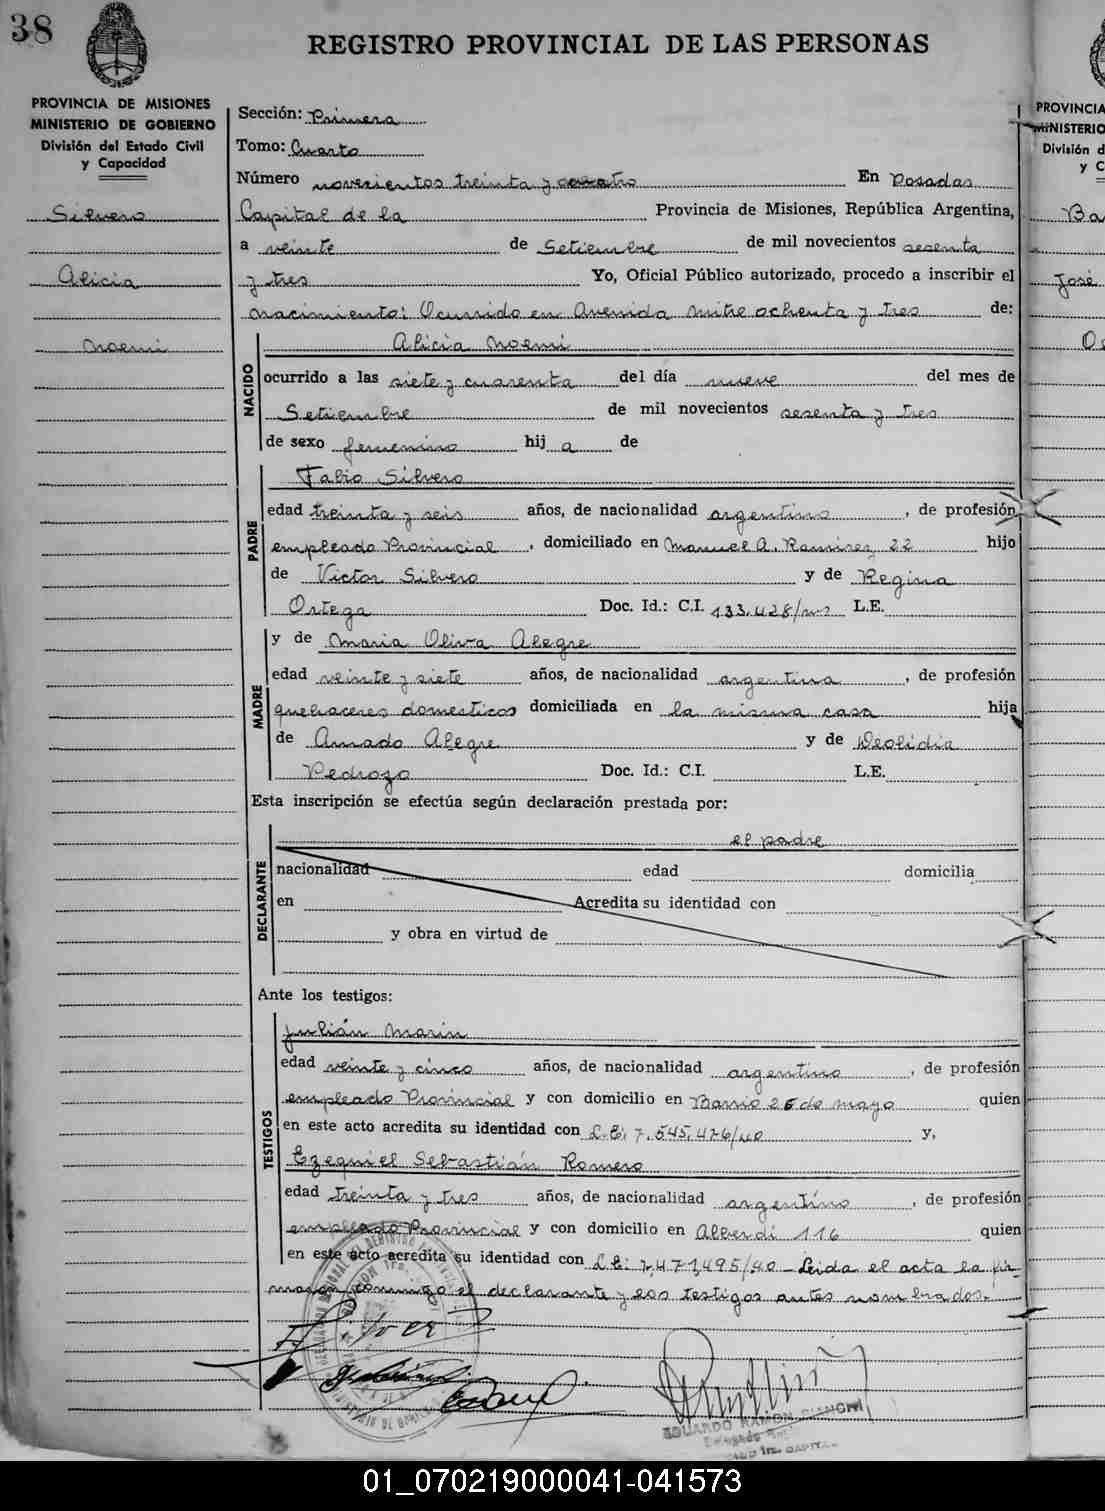 38
REGISTRO PROVINCIAL DE LAS PERSONAS
PROVINCIA DE MISIONES
MINISTERIO DE GOBIERNO
División del Estado Civil
y Capacidad
Silvero
Alicia
Noemi
Sección: Primera
Tomo: Cuarto
Número novecientos treinta y cuatro En Posadas
Capital de la Provincia de Misiones, República Argentina,
a veinte de Setiembre de mil novecientos sesenta
y tres Yo, Oficial Público autorizado, procedo a inscribir el
nacimiento: Ocurrido en Avenida Mitre ochenta y tres de:
NACIDO
Alicia Noemi
ocurrido a las siete y cuarenta del día nueve del mes de
Setiembre de mil novecientos sesenta y tres
de sexo femenino hij a de
PADRE
Fabio Silvero
edad treinta y seis años, de nacionalidad argentino, de profesión
empleado Provincial, domiciliado en Manuel A. Ramirez 22 hijo
de Victor Silvero y de Regina
Ortega Doc. Id.: C.I. 133.428/ L.E.
MADRE
y de Maria Oliva Alegre
edad veinte y siete años, de nacionalidad argentina, de profesión
quehaceres domesticos domiciliada en la misma casa hija
de Amado Alegre y de Deolidia
Pedrozo Doc. Id.: C.I. L.E.
Esta inscripción se efectúa según declaración prestada por:
DECLARANTE
el padre
nacionalidad edad domicilia
en Acredita su identidad con
y obra en virtud de
Ante los testigos:
TESTIGOS
Julián Marin
edad veinte y cinco años, de nacionalidad argentino, de profesión
empleado Provincial y con domicilio en Barrio 25 de mayo quien
en este acto acredita su identidad con L.E: 7.545.476/40 y,
Ezequiel Sebastián Romero
edad treinta y tres años, de nacionalidad argentino, de profesión
empleado Provincial y con domicilio en Alberdi 116 quien
en este acto acredita su identidad con L.E: 7,471,495/40 - Leida el acta la fir-
man conmigo el declarante y los testigos antes nombrados.
EDUARDO RAMON BIANCHI
PROVINCIA
MINISTERIO
División d
y C
Ba
José
01_070219000041-041573